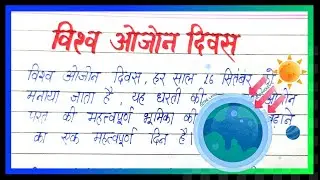 विश्व ओजोन दिवस
विश्व ओजोन दिवस, हर साल 16 सितंबर को
मनाया जाता है, यह धरती की
परत की महत्वपूर्ण भूमिका को
का एक महत्वपूर्ण दिन है।